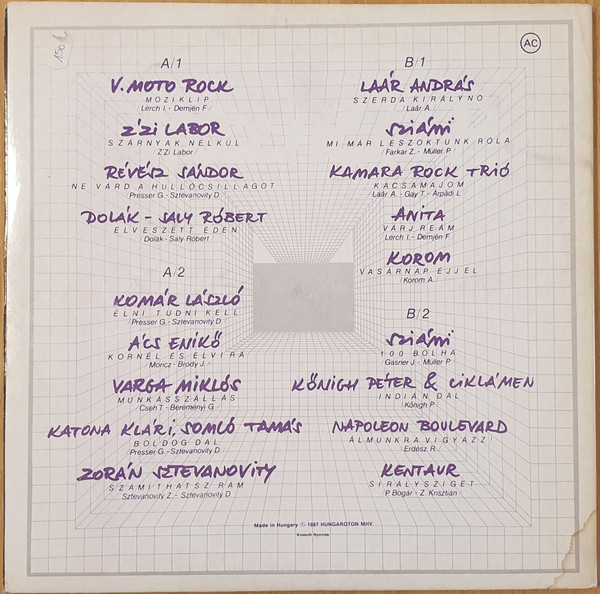 150
AC
A/1
V. MOTO ROCK
MOZIKLIP
Lerch I.- Demjén F.
Z'ZI LABOR
SZÁRNYAK NÉLKÜL
Z'Zi Labor
RÉVÉSZ SÁNDOR
NE VÁRD A HULLÓCSILLAGOT
Presser G.- Sztevanovity D.
DOLÁK - SALY RÓBERT
ELVESZETT ÉDEN
Dolák - Saly Róbert
A/2
KOMÁR LÁSZLÓ
ÉLNI TUDNI KELL
Presser G.- Sztevanovity D.
ÁCS ENIKŐ
KORNÉL ÉS ELVIRA
Móricz - Bródy J.
VARGA MIKLÓS
MUNKÁSSZÁLLÁS
Cseh T.- Bereményi G.
KATONA KLÁRI, SOMLÓ TAMÁS
BOLDOG DAL
Presser G.- Sztevanovity D.
ZORÁN SZTEVANOVITY
SZÁMÍTHATSZ RÁM
Sztevanovity Z. - Sztevanovity D.
B/1
LAÁR ANDRÁS
SZERDA KIRÁLYNŐ
Laár A.
SZIÁMI
MI MÁR LESZOKTUNK RÓLA
Farkar Z.- Müller P.
KAMARA ROCK TRIÓ
KACSAMAJOM
Laár A.- Gay T.- Árpádi L.
ANITA
VÁRJ REÁM
Lerch I.- Demjén F.
KOROM
VASÁRNAP ÉJJEL
Korom A.
B/2
SZIÁMI
100 BOLHA
Gasner J.- Müller P.
KŐNIGH PÉTER & CIKLÁMEN
INDIÁN DAL
Kőnigh P.
NAPOLEON BOULEVARD
ÁLMUNKRA VIGYÁZZ!
Erdész R.
KENTAUR
SIRÁLYSZIGET
P. Bogár - Z. Krisztián
Made in Hungary Ⓟ 1987 HUNGAROTON MHV
Kossuth Nyomda